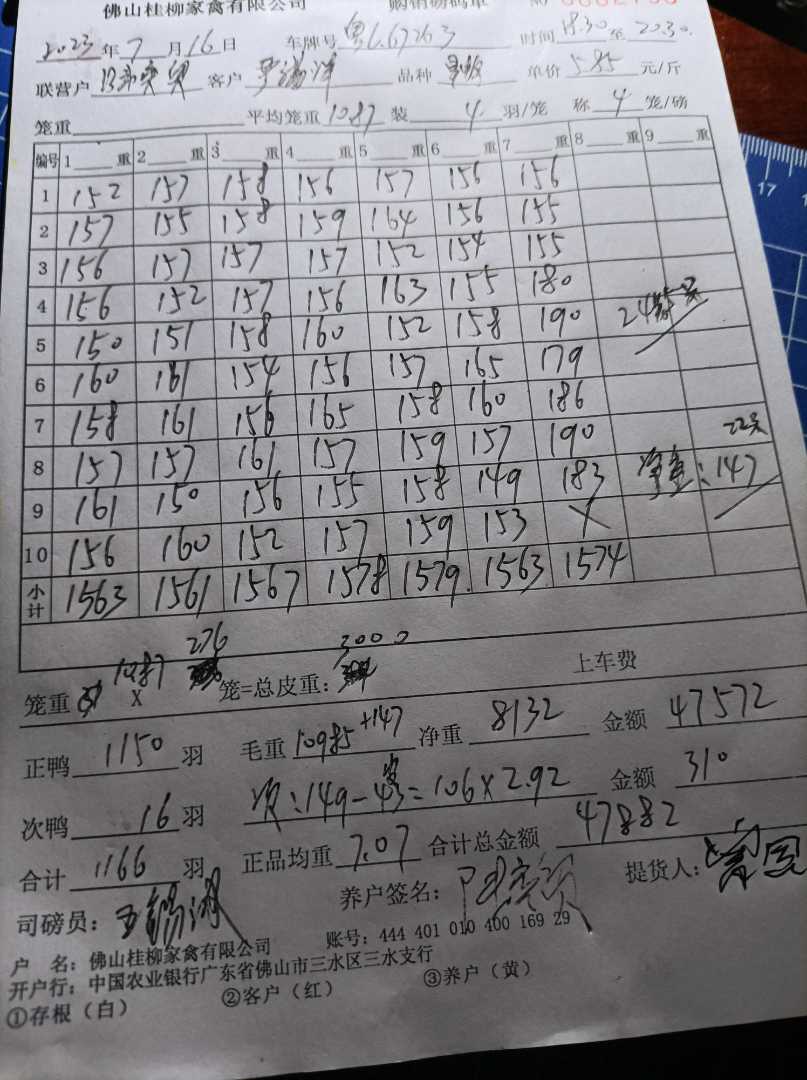 佛山桂柳家禽有限公司 购销磅码单 NO
2023年7月16日 车牌号 粤L67263 时间 18.30至20.30.
联营户 客户 品种 单价 5.85 元/斤
笼重 平均笼重 1087 装 4 羽/笼 称 4 笼/磅
编号 1 重 2 重 3 重 4 重 5 重 6 重 7 重 8 重 9 重
1 152 157 158 156 157 156 156
2 157 155 158 159 164 156 155
3 156 157 157 157 152 154 155
4 156 152 157 156 163 155 180
5 150 151 158 160 152 158 190
6 160 161 154 156 157 165 179
7 158 161 156 165 158 160 186
8 157 157 161 157 159 157 190 22只
9 161 150 156 155 158 149 183 净重:147
10 156 160 152 157 159 153 X
小计 1563 1561 1567 1578 1579. 1563 1574
276 3000
笼重 1087 X 笼=总皮重: 上车费
正鸭 1150 羽 毛重 10985+147 净重 8132 金额 47572
次鸭 16 羽 次:149-43=106×2.92 金额 310
合计 1166 羽 正品均重 7.07 合计总金额 47882
司磅员: 养户签名: 提货人:
户 名: 佛山桂柳家禽有限公司 账号: 444 401 010 400 169 29
开户行: 中国农业银行广东省佛山市三水区三水支行
①存根(白) ②客户(红) ③养户(黄)